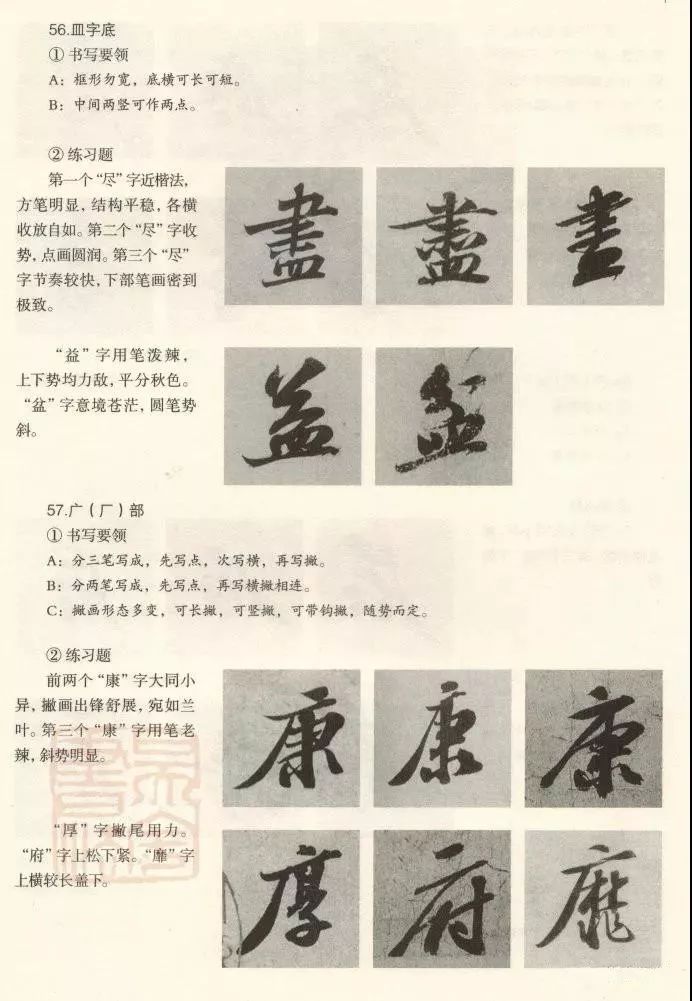 56.皿字底
① 书写要领
A：框形勿宽，底横可长可短。
B：中间两竖可作两点。
② 练习题
第一个“尽”字近楷法，
方笔明显，结构平稳，各横
收放自如。第二个“尽”字收
势，点画圆润。第三个“尽”
字节奏较快，下部笔画密到
极致。
盡 盡 盡
“益”字用笔泼辣，
上下势均力敌，平分秋色。
“盆”字意境苍茫，圆笔势
斜。
益 盆
57.广（厂）部
① 书写要领
A：分三笔写成，先写点，次写横，再写撇。
B：分两笔写成，先写点，再写横撇相连。
C：撇画形态多变，可长撇，可竖撇，可带钩撇，随势而定。
② 练习题
前两个“康”字大同小
异，撇画出锋舒展，宛如兰
叶。第三个“康”字用笔老
辣，斜势明显。
康 康 康
“厚”字撇尾用力。
“府”字上松下紧。“靡”字
上横较长盖下。
厚 府 靡